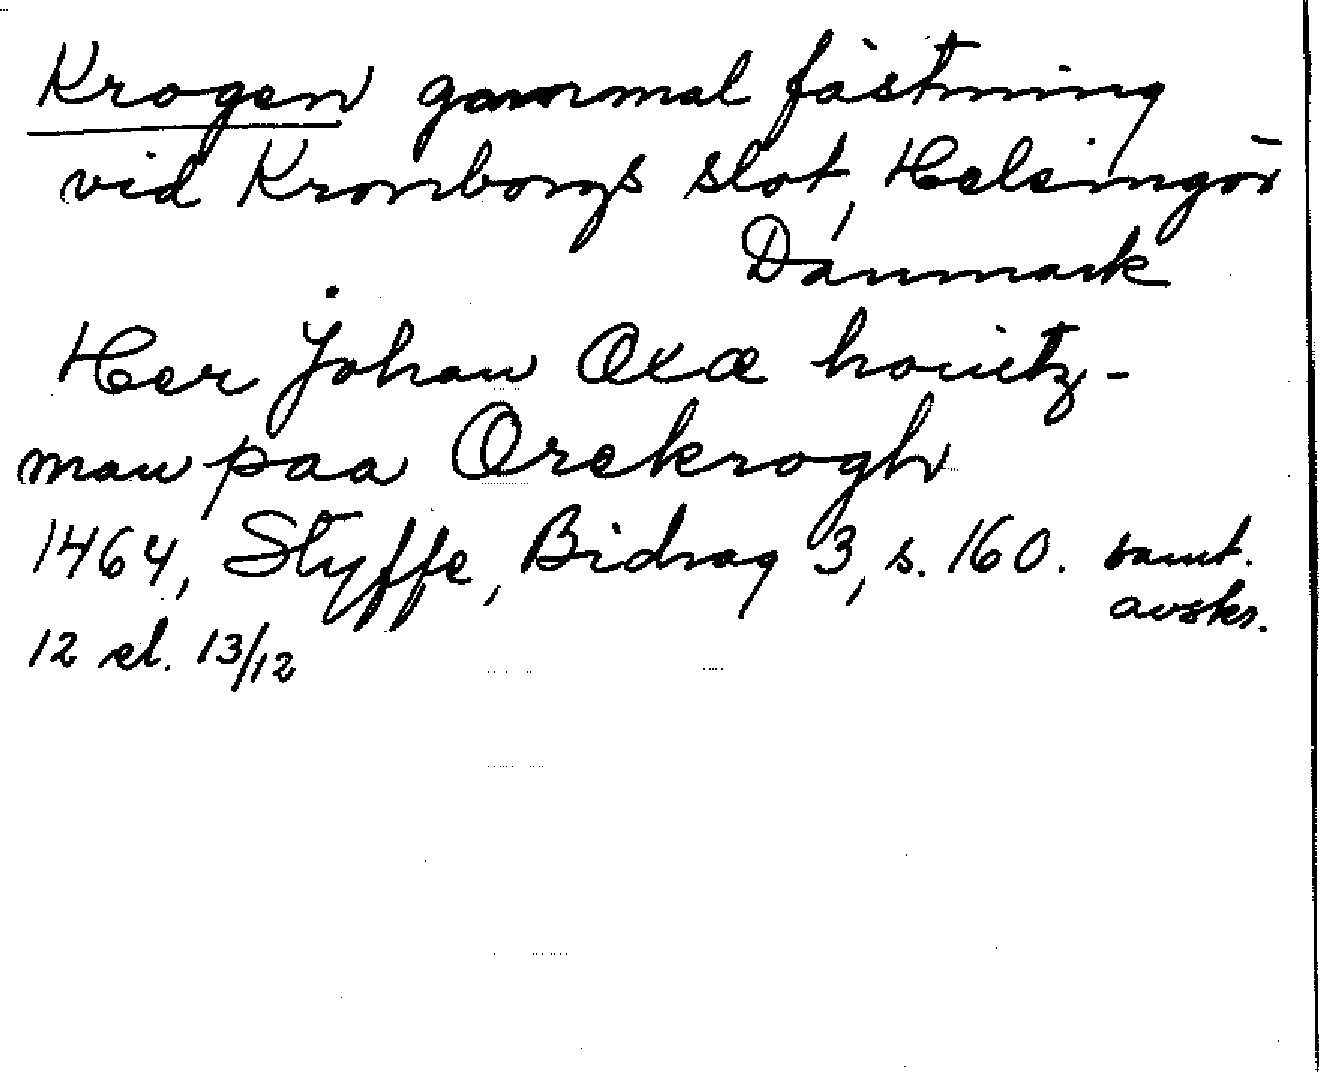 Krogen gammal fästning
vid Kronborgs slot, Helsingör
Danmark
Her Johan Oxæ houitz-
man paa Orekrogh
1464, Styffe, Bidrag 3, s. 160. samt.
avskr.
12 el. 13/12